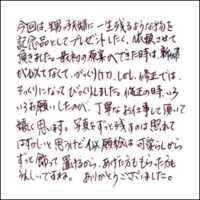 今回は、甥っ子夫婦に一生残るような物を
記念品としてプレゼントしたく、依頼させて
頂きました。最初の原案ができた時は、新婦
が似てなくて、がっくり!!しかし、修正では、
そっくりになってびっくりしました。修正の時、いろ
いろお願いしたのが、丁寧なお仕事して頂いて
嬉しく思います。写真をずっと残すのは照れて
はずかしいと思うけど、似顔絵は可愛らしいから
ずっと飾って置けるから、あげた方ももらった方も
うれしいですね。ありがとうございました。